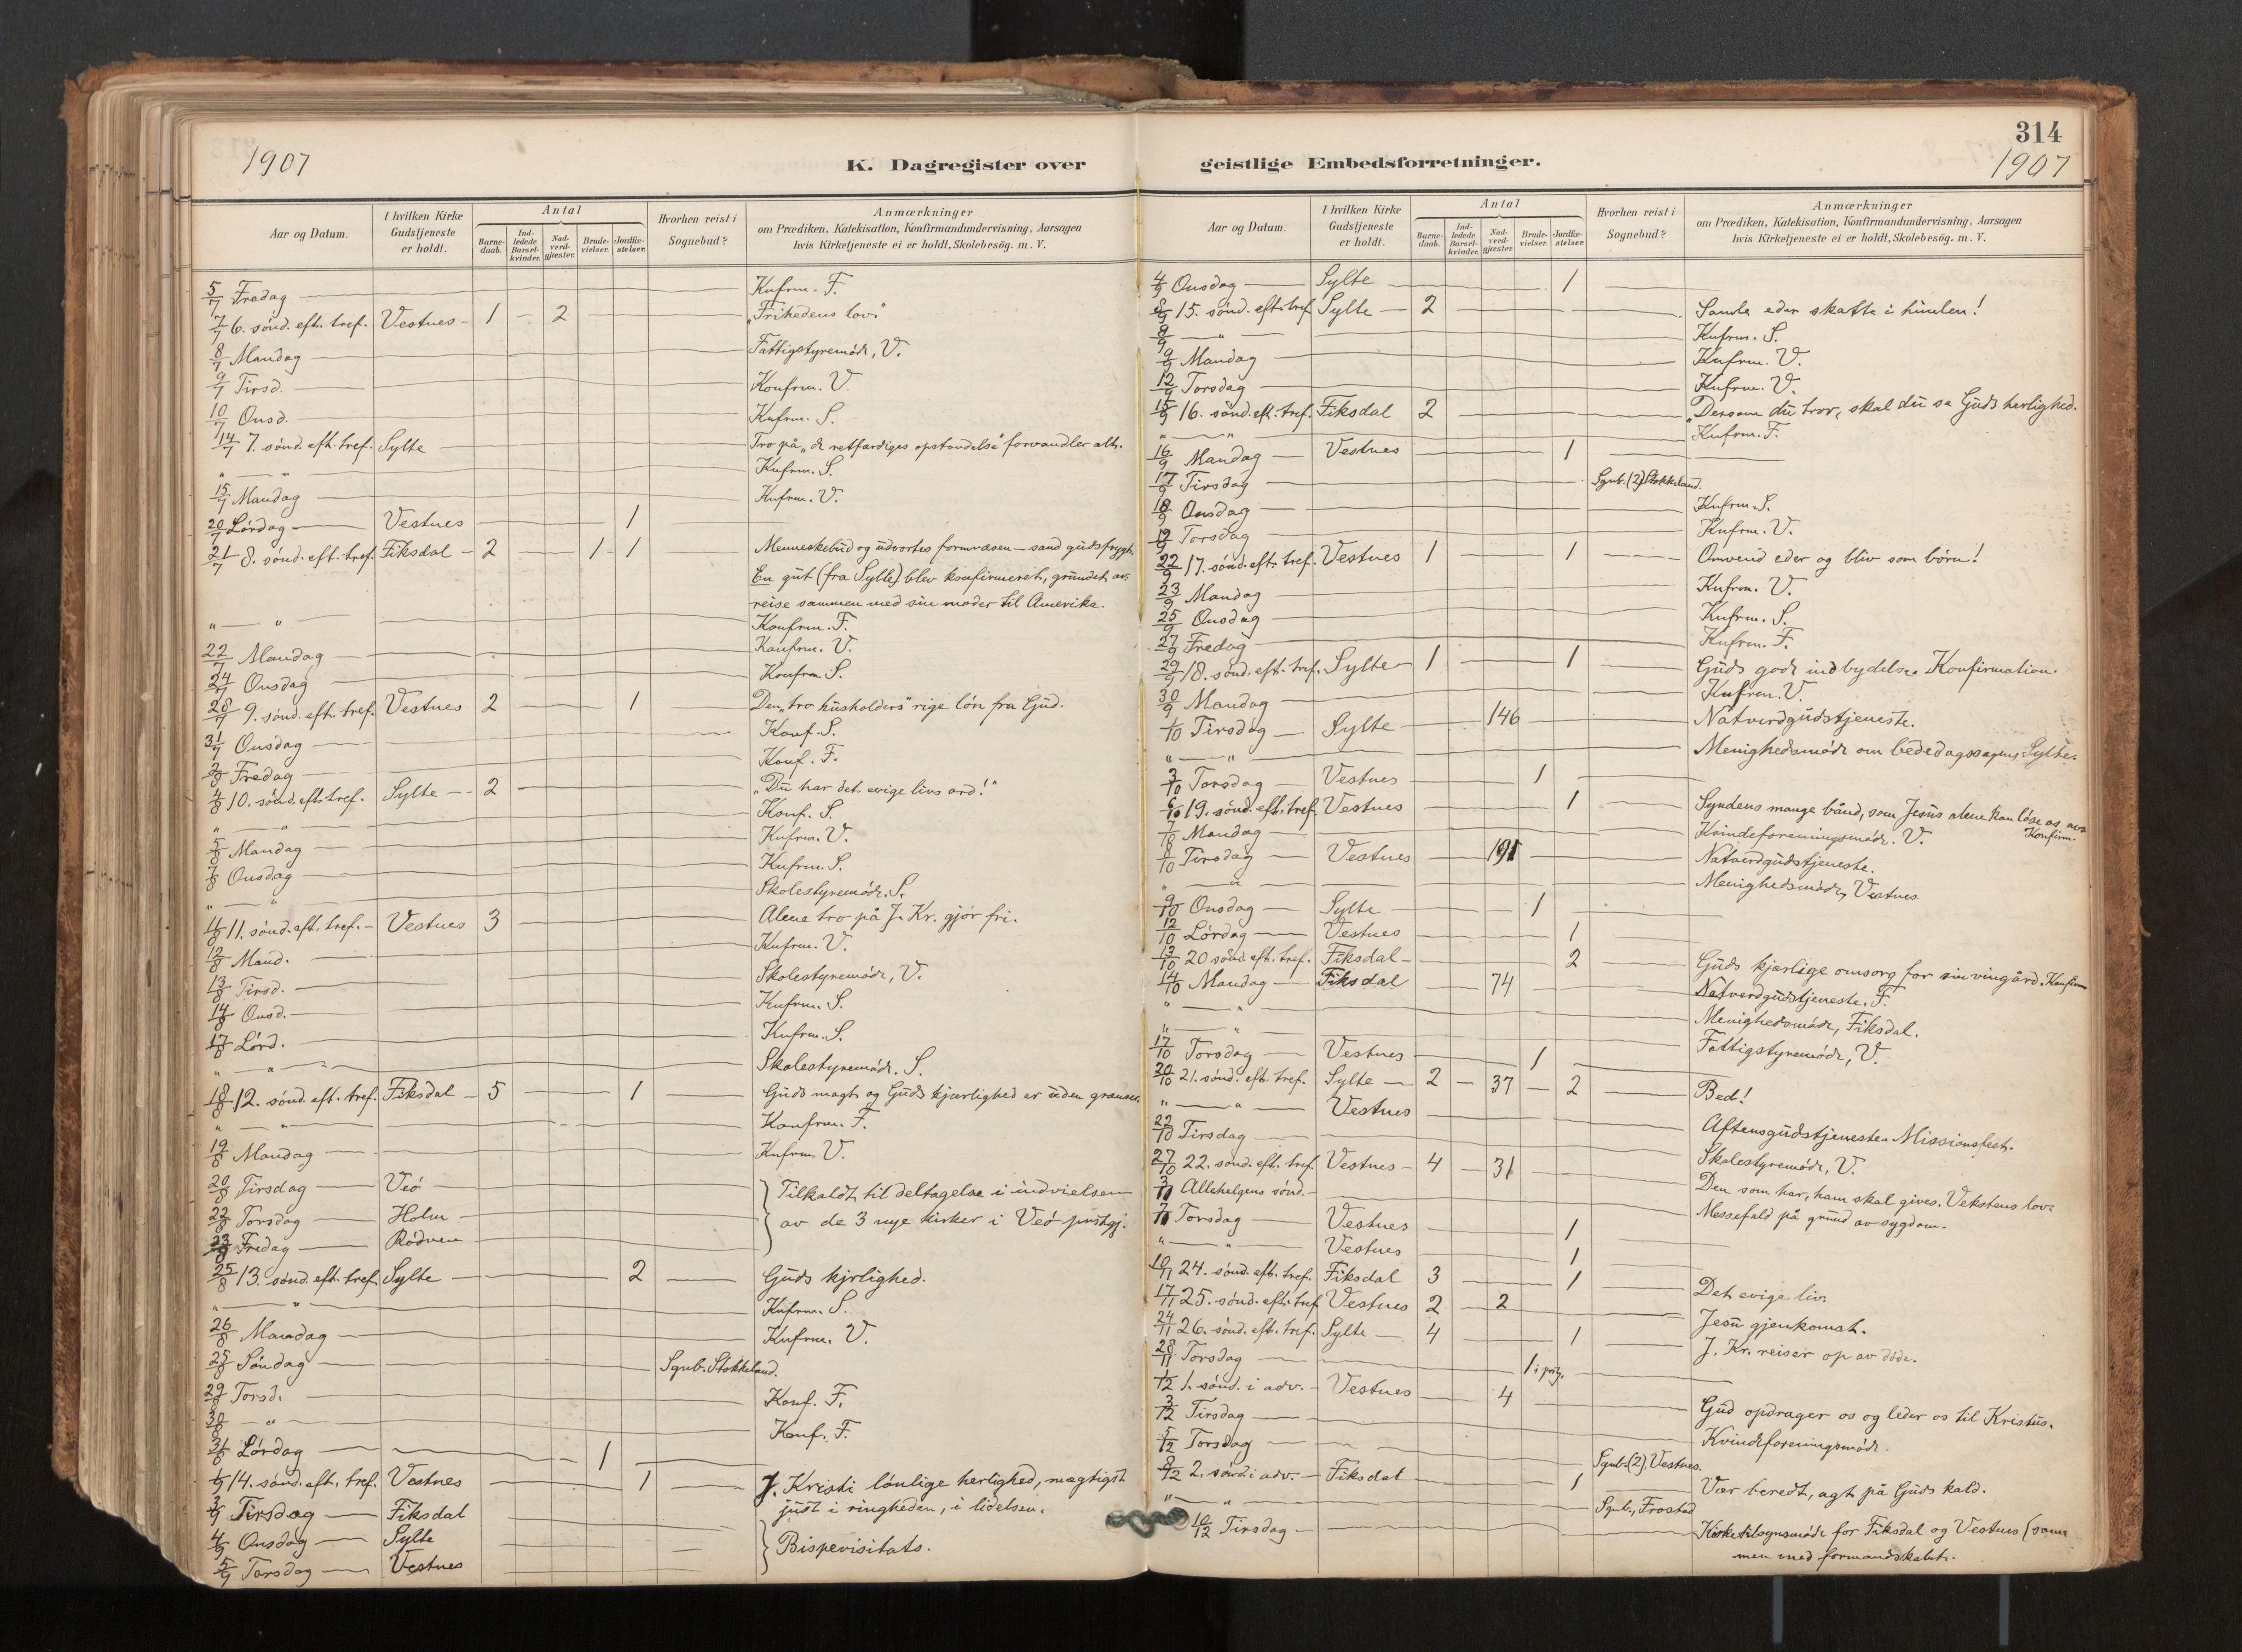 1907
K. Dagregister over
Aar og Datum.
I hvilken Kirke Gudstjeneste er holdt.
Antal
Barnedaab.
Indledede Barselkvinder.
Nadverdgjæster.
Brudevielser.
Jordfæstelser.
Hvorhen reist i Sognebud?
Anmærkninger
om Prædiken, Katekisation, Konfirmandundervisning, Aarsagen
hvis Kirketjeneste ei er holdt, Skolebesög. m. V.
5/7 Fredag Kufrm. F.
7/7 6. sönd. eft. tref. Vestnes 1 2 "Frihedens lov."
8/7 Mandag Fattigstyremöde, V.
9/7 Tirsd. Konfrm. V.
10/7 Onsd. Kufrm. S.
14/7 7. sönd. eft. tref. Sylte Tro på "de retfærdiges opstandelse" forvandler alt.
" — " Kufrm. S.
15/7 Mandag Kufrm. V.
20/7 Lördag Vestnes 1
21/7 8. sönd. eft. tref. Fiksdal 2 1 1 Menneskebud og udvortes formvæsen — sand gudsfrygt.
En gut (fra Sylte) blev konfirmeret, grundet av-
reise sammen med sin moder til Amerika.
" — " Konfrm. F.
22/7 Mandag Konfrm. V.
24/7 Onsdag Konfrm. S.
28/7 9. sönd. eft. tref. Vestnes 2 1 Den "tro husholders" rige lön fra Gud.
31/7 Onsdag Konf. S.
2/8 Fredag Konf. F.
4/8 10. sönd. eft. tref. Sylte 2 "Du har det evige livs ord!"
" — " Konf. S.
5/8 Mandag Kufrm. V.
7/8 Onsdag Kufrm. S.
" — " Skolestyremöde. S.
11/8 11. sönd. eft. tref. Vestnes 3 Alene tro på J. Kr. gjör fri.
12/8 Mand. Kufrm. V.
13/8 Tirsd. Skolestyremöde, V.
14/8 Onsd. Kufrm. S.
17/8 Lörd. Kufrm. S.
" — " Skolestyremöde. S.
18/8 12. sönd. eft. tref. Fiksdal 5 1 Guds magt og Guds kjærlighed er uden grænser.
" — " Konfrm. F.
19/8 Mandag Kufrm. V.
20/8 Tirsdag Veö Tilkaldt til deltagelse i indvielsen
22/8 Torsdag Holm av de 3 nye kirker i Veö prstgj.
23/8 Fredag Rödven
25/8 13. sönd. eft. tref. Sylte 2 Guds kjrlighed.
" — " Kufrm. S.
26/8 Mandag Kufrm. V.
25/8 Söndag Sgnb. Stokkeland.
29/8 Torsd. Konf. F.
30/8 — " Konf. F.
31/8 Lördag 1
1/9 14. sönd. eft. tref. Vestnes 1 J. Kristi lönlige herlighed, mægtigst
just i ringheden, i lidelsen.
3/9 Tirsdag Fiksdal
4/9 Onsdag Sylte Bispevisitats.
5/9 Torsdag Vestnes
314
1907
geistlige Embedsforretninger.
Aar og Datum.
I hvilken Kirke Gudstjeneste er holdt.
Antal
Barnedaab.
Indledede Barselkvinder.
Nadverdgjæster.
Brudevielser.
Jordfæstelser.
Hvorhen reist i Sognebud?
Anmærkninger
om Prædiken, Katekisation, Konfirmandundervisning, Aarsagen
hvis Kirketjeneste ei er holdt, Skolebesög. m. V.
4/9 Onsdag Sylte 1
8/9 15. sönd. eft. tref. Sylte 2 Samle eder skatte i himlen!
8/9 — " Kufrm. S.
9/9 Mandag Kufrm. V.
12/9 Torsdag Kufrm. V.
15/9 16. sönd. eft. tref. Fiksdal 2 "Dersom du tror, skal du se Guds herlighed.
" — " Kufrm. F.
16/9 Mandag Vestnes 1
17/9 Tirsdag Sgnb. (2) Stokkeland.
18/9 Onsdag Kufrm. S.
19/9 Torsdag Kufrm. V.
22/9 17. sönd. eft. tref. Vestnes 1 1 Omvend eder og bliv som börn!
23/9 Mandag Kufrm. V.
25/9 Onsdag Kufrm. S.
27/9 Fredag Kufrm. F.
29/9 18. sönd. eft. tref. Sylte 1 1 Guds gode indbydelse. Konfirmation.
30/9 Mandag Kufrm. V.
1/10 Tirsdag Sylte 146 Natverdgudstjeneste.
" — " Menighedsmöde om bededagssagen, Sylte.
3/10 Torsdag Vestnes 1
6/10 19. sönd. eft. tref. Vestnes 1 Syndens mange bånd, som Jesus alene kan löse os av. Konfirm.
7/10 Mandag Kvindeforeningsmöde. V.
8/10 Tirsdag Vestnes 191 Natverdgudstjeneste.
" — " Menighedsmöde, Vestnes
9/10 Onsdag Sylte 1
12/10 Lördag Vestnes 1
13/10 20 sönd. eft. tref. Fiksdal 2 Guds kjærlige omsorg for sin vingård. Konfirm
14/10 Mandag Fiksdal 74 Natverdgudstjeneste. F.
" — " Menighedsmöde, Fiksdal.
" — " Fattigstyremöde, V.
17/10 Torsdag Vestnes 1
20/10 21. sönd. eft. tref. Sylte 2 37 2 Bed!
" — " Vestnes Aftensgudstjeneste. Missionsfest.
22/10 Tirsdag Skolestyremöde, V.
27/10 22. sönd. eft. tref. Vestnes 4 31 Den som har, ham skal gives. Vekstens lov.
3/11 Allehelgens sönd. Messefald på grund av sygdom.
7/11 Torsdag Vestnes 1
" — " Vestnes 1
10/11 24. sönd. eft. tref. Fiksdal 3 1 Det evige liv.
17/11 25. sönd. eft. tref. Vestnes 2 2 Jesu gjenkomst.
24/11 26. sönd. eft. tref. Sylte 4 1 J. Kr. reiser op av döde.
28/11 Torsdag 1
1/12 1. sönd. i adv. Vestnes 4 Gud opdrager os og leder os til Kristus.
3/12 Tirsdag Kvindeforeningsmöde.
5/12 Torsdag Sgnb. (2), Vestnes.
8/12 2. sönd. i adv. Fiksdal 1 Vær beredt, agt på Guds kald.
" — " Sgnb., Frostad
10/12 Tirsdag Kirketilsynsmöde for Fiksdal og Vestnes (sam-
men med formandskabet.